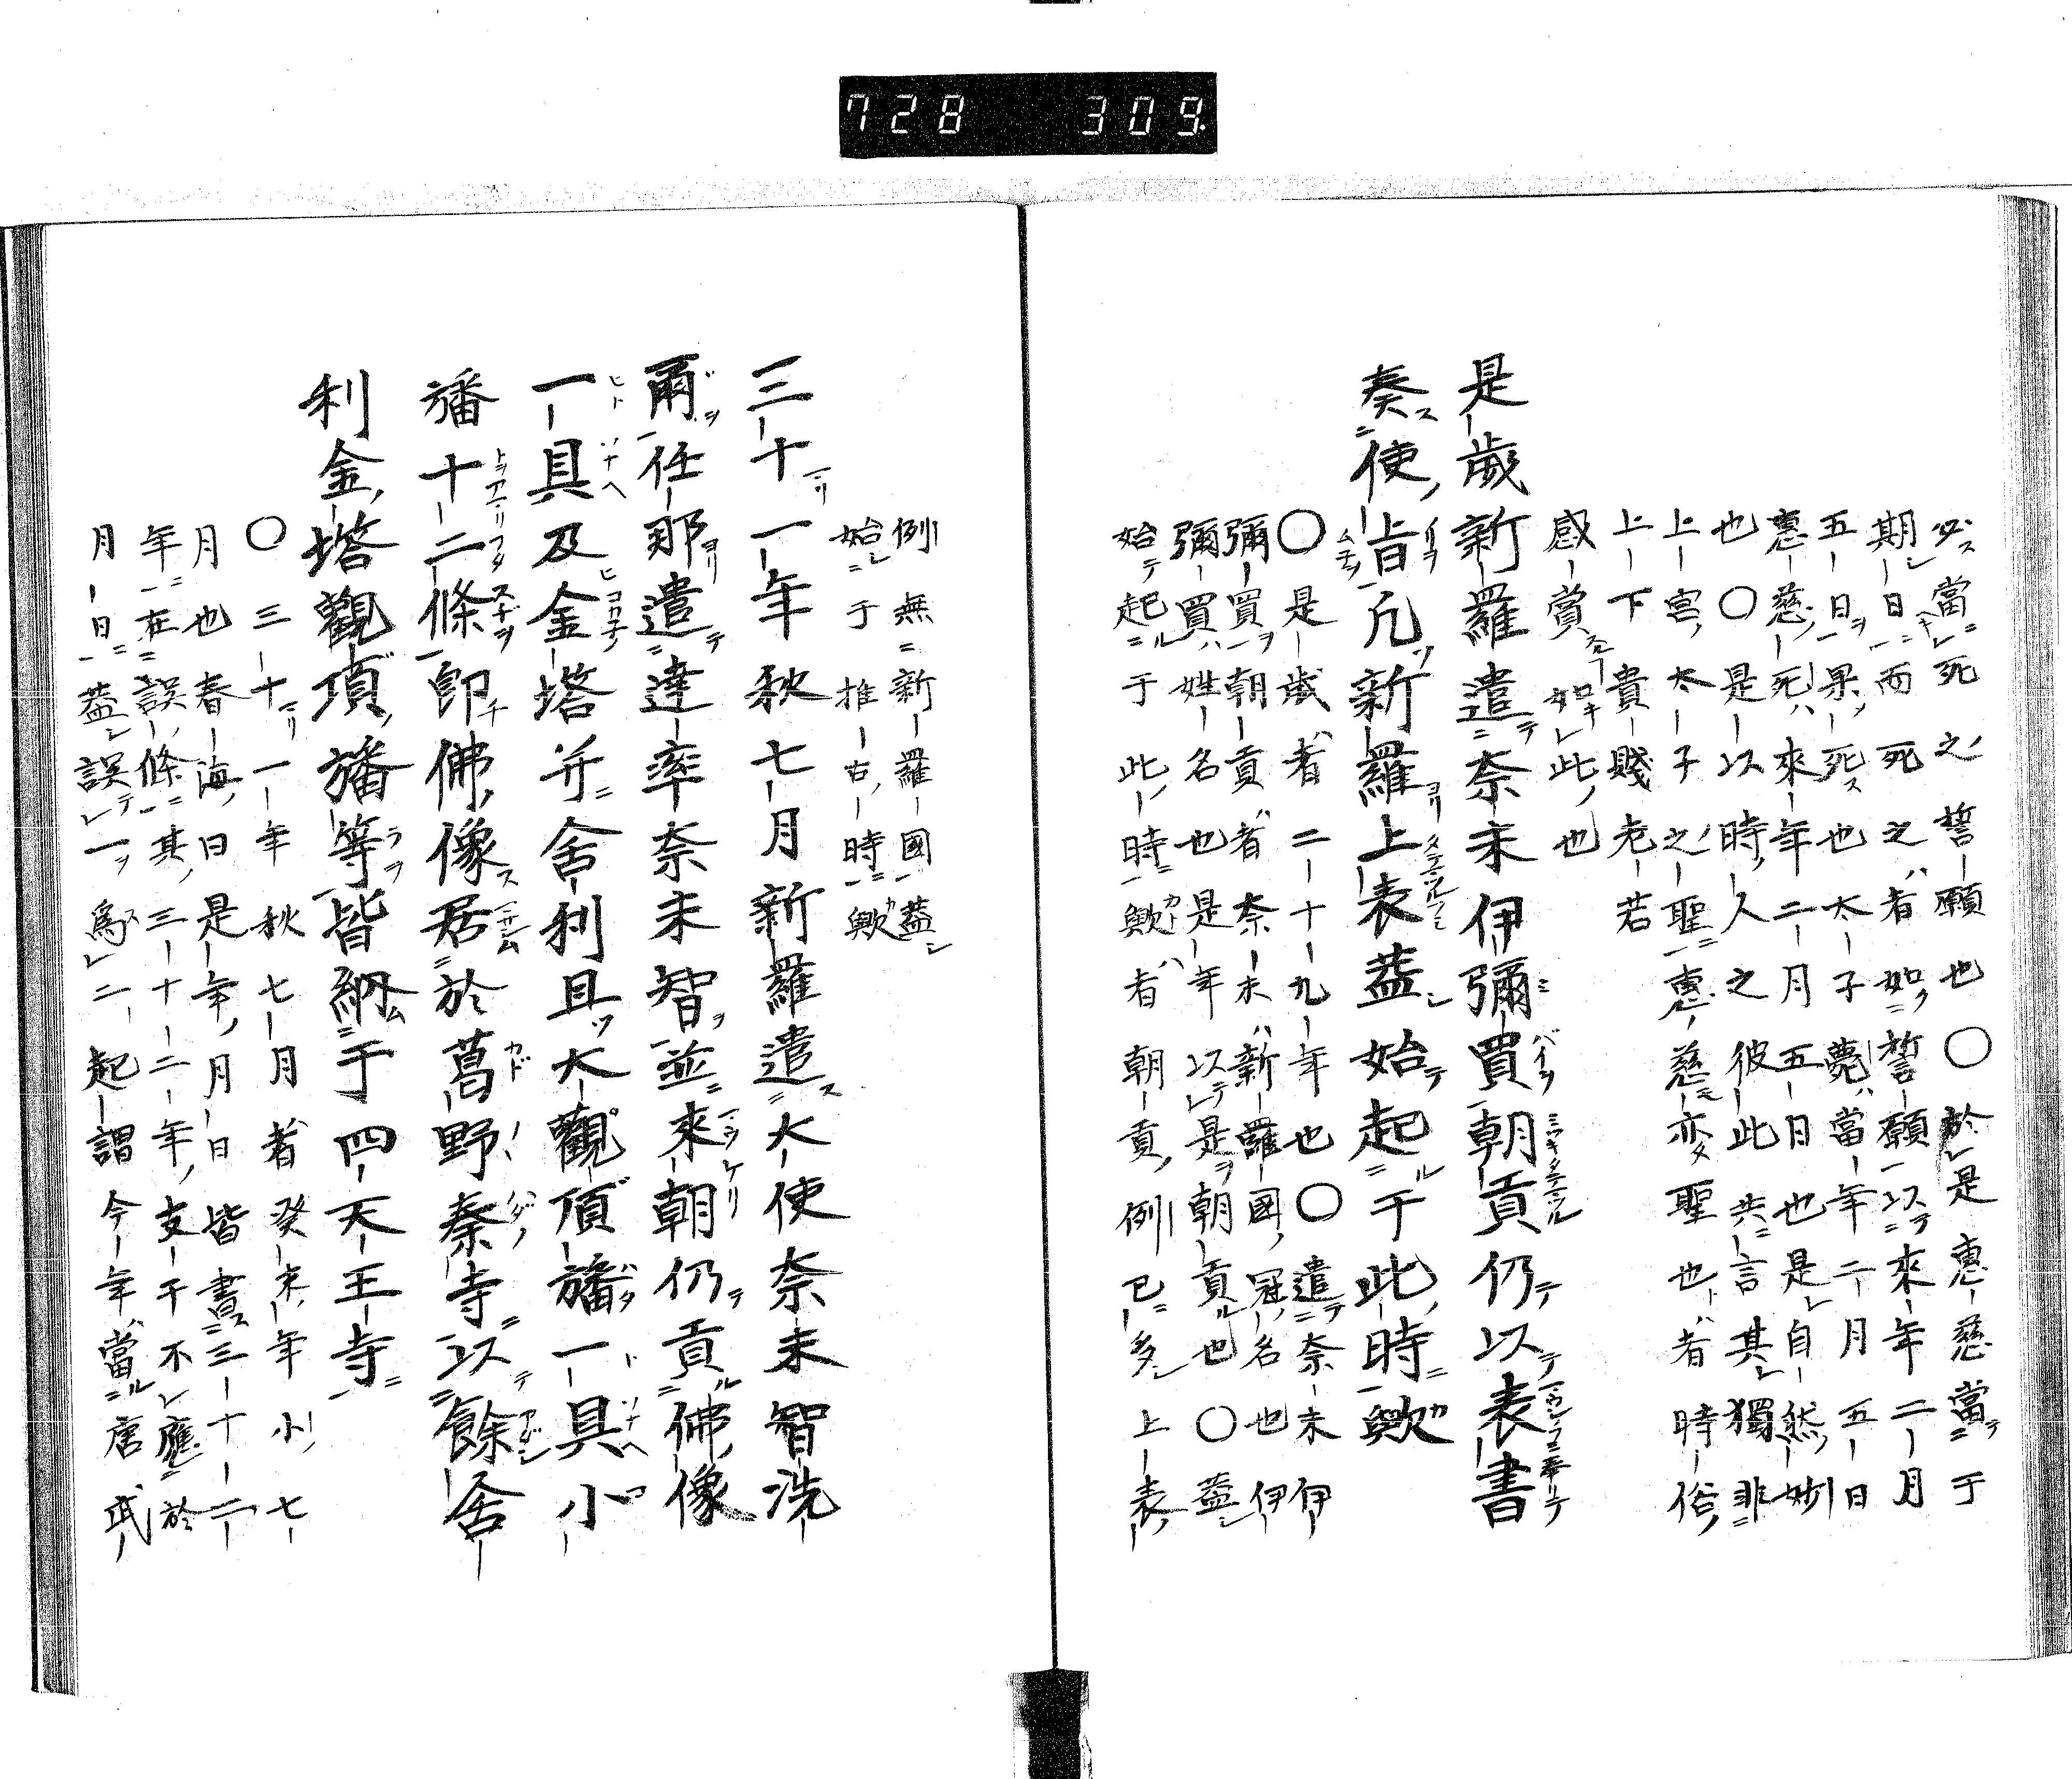 728 309
必當死之誓願也〇於是惠慈當于
期日而死之者如誓願以來年二月
五日果死也太子薨當年二月五日
惠慈死來年二月五日也是自然妙
也〇是以時人之彼此共言其獨非
上宮太子之聖惠慈亦聖也者時俗
上下貴賤老若
感賞如此也
是歲新羅遣奈末伊彌買朝貢仍以表書
奏使旨凡新羅上表蓋始起于此時歟
〇是歲者二十九年也〇遣奈末伊
彌買朝貢者奈末新羅國冠名也伊
彌買姓名也是年以是朝貢也〇蓋
始起于此時歟者朝貢例已多上表
例無新羅國蓋
始于推古時歟
三十一年秋七月新羅遣大使奈末智洗
爾任那遣達率奈末智並來朝仍貢佛像
一具及金塔并舍利且大觀頂旛一具小
旛十二條即佛像居於葛野秦寺以餘舍
利金塔觀頂旛等皆納于四天王寺
〇三十一年秋七月者癸未年小七
月也春海曰是年月日皆書三十二
年在誤條其三十二年支干不應於
月日蓋誤一爲二起謂今年當唐武